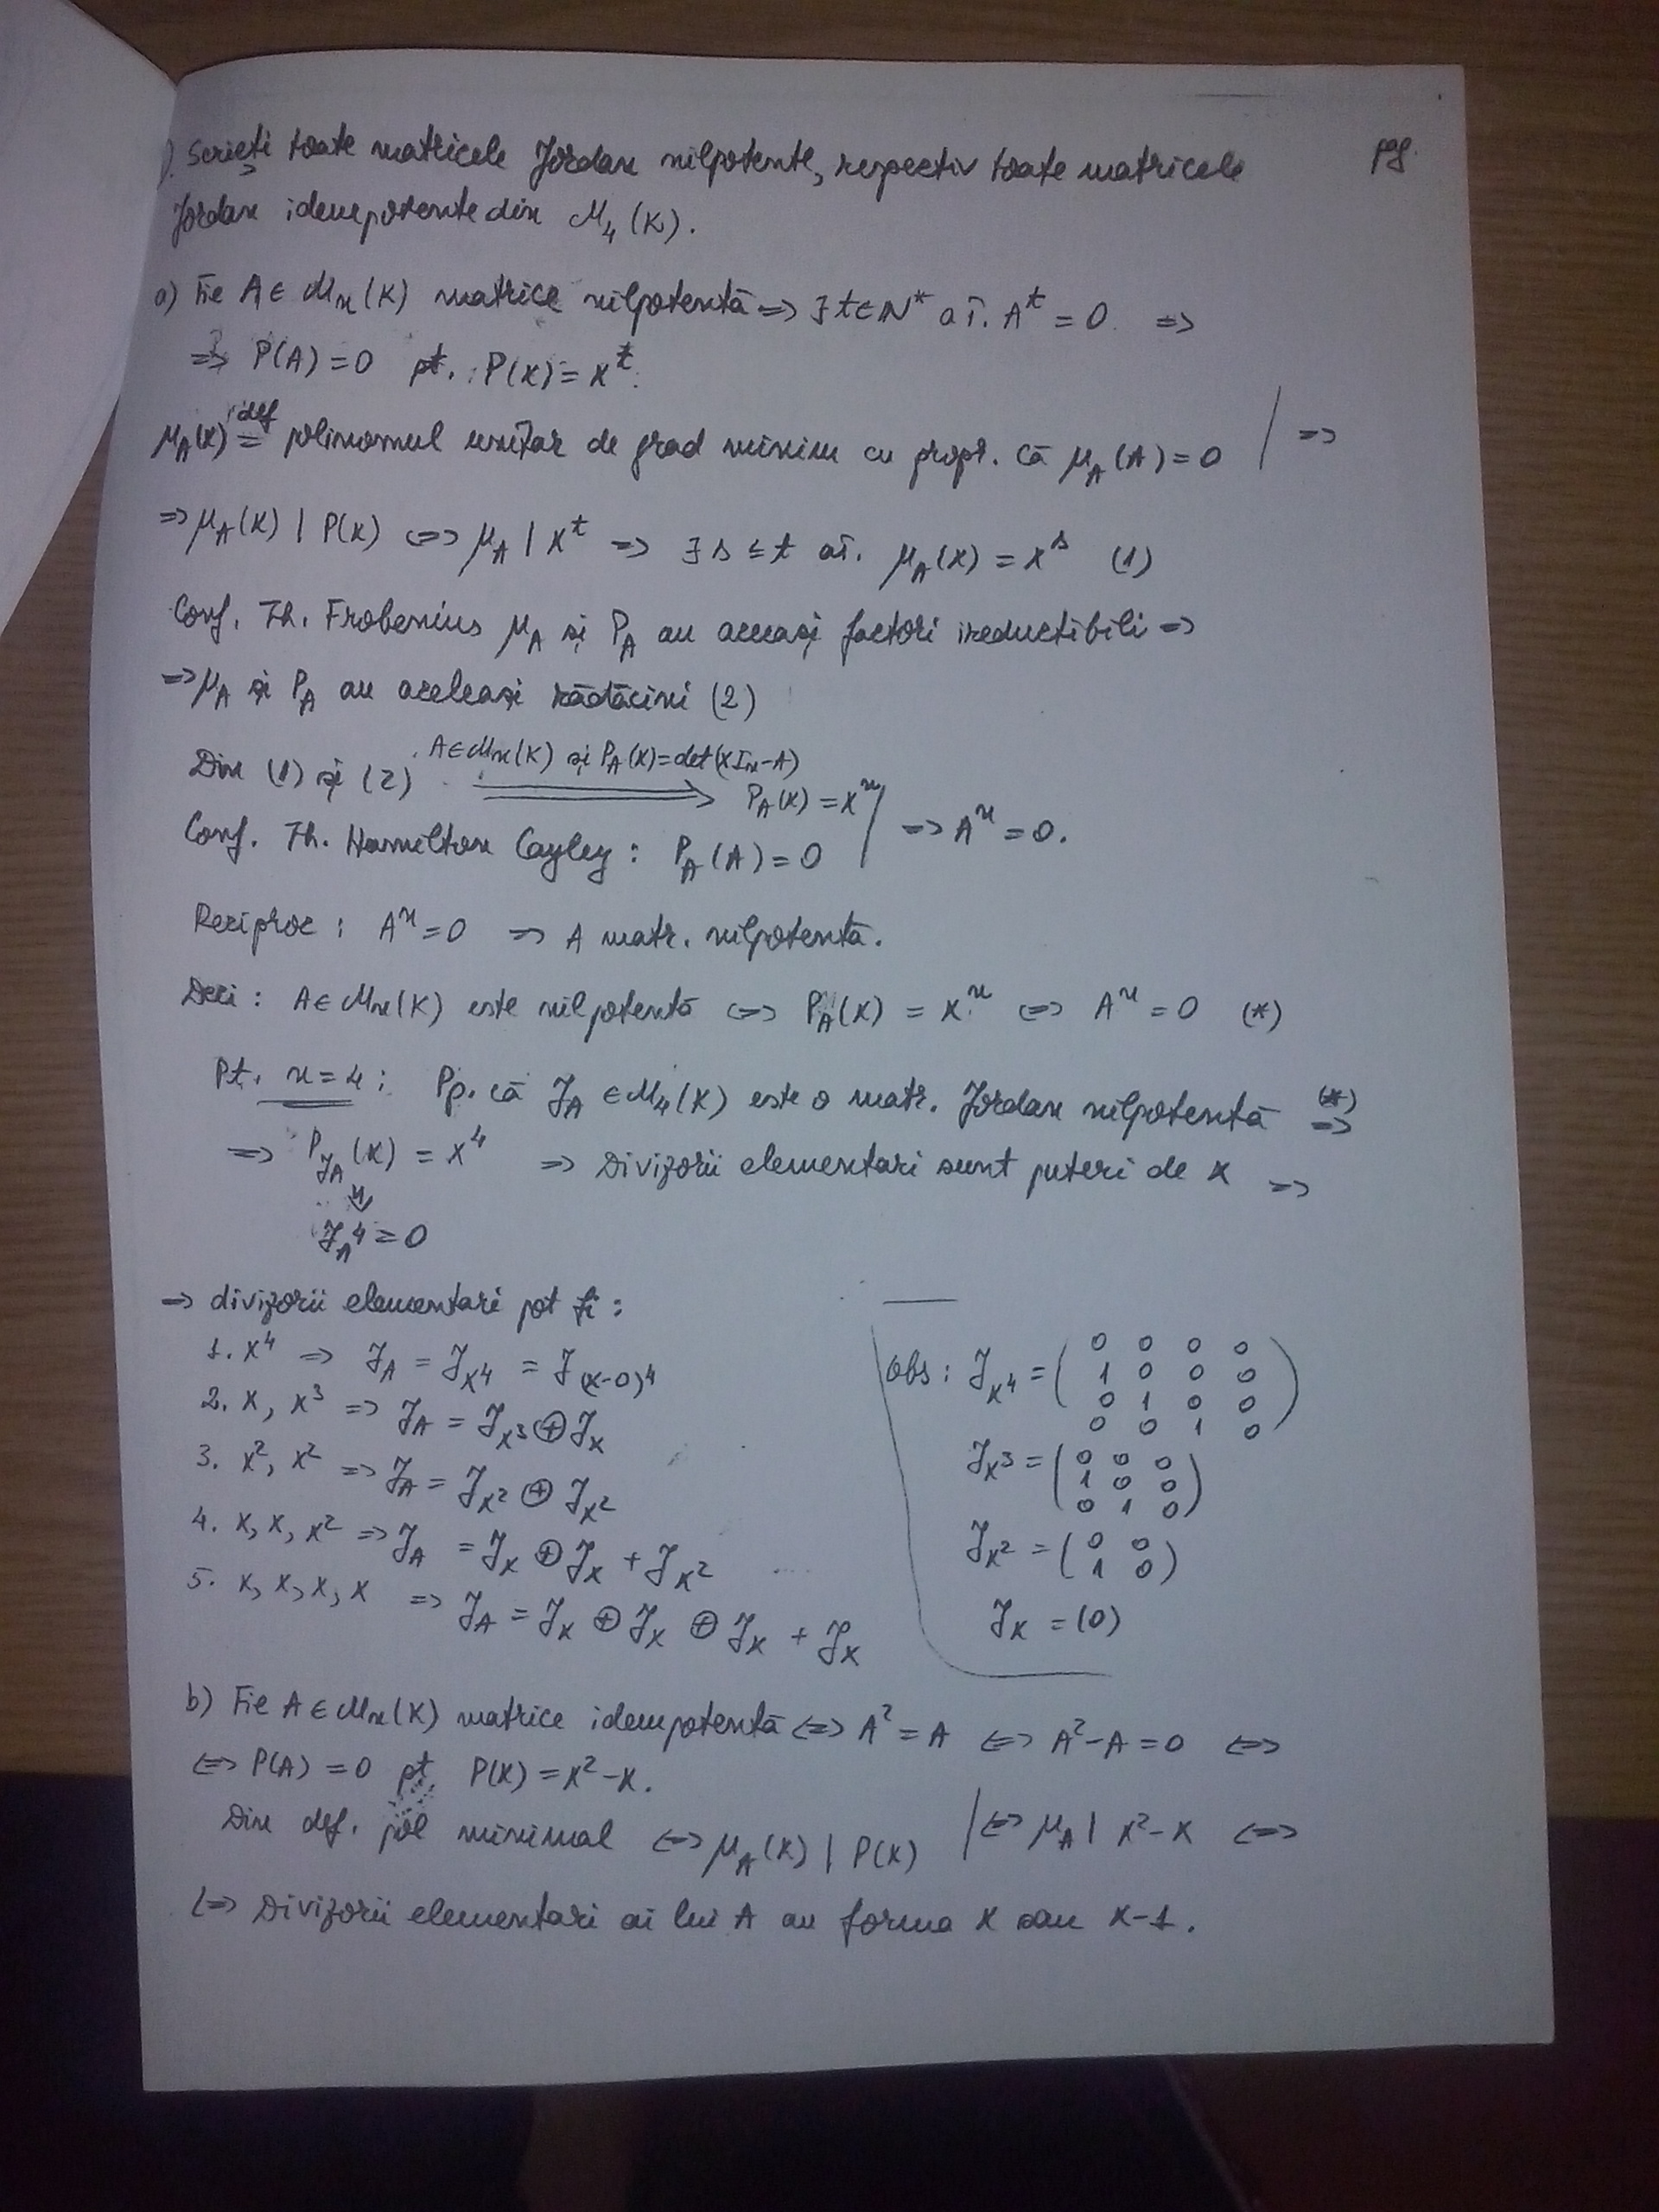 ). Scrieți toate matricele Jordan nilpotente, respectiv toate matricele
Jordan idempotente din M₄(K).
a) Fie A ∈ Mₙ(K) matrice nilpotentă => ∃ t∈N* aî. Aᵗ = 0 =>
=> P(A) = 0 pt. P(X) = Xᵗ.
μ_A(X) =^def polinomul unitar de grad minim cu propr. că μ_A(A) = 0 | =>
=> μ_A(X) | P(X) <=> μ_A | Xᵗ => ∃ s ≤ t aî. μ_A(X) = Xˢ (1)
Conf. Th. Frobenius μ_A și P_A au aceeași factori ireductibili =>
=> μ_A și P_A au aceleași rădăcini (2)
Din (1) și (2) ==(A∈Mₙ(K) și P_A(X)=det(XIₙ-A))==> P_A(X) = Xⁿ
Conf. Th. Hamilton Cayley: P_A(A) = 0 | => Aⁿ = 0.
Reciproc: Aⁿ = 0 => A matr. nilpotentă.
Deci: A∈Mₙ(K) este nilpotentă <=> P_A(X) = Xⁿ <=> Aⁿ = 0 (*)
Pt. n = 4: Pp. că J_A ∈ M₄(K) este o matr. Jordan nilpotentă =>^(*)
=> P_{J_A}(X) = X⁴ => Divizorii elementari sunt puteri de X =>
⇓
J_A⁴ = 0
=> divizorii elementari pot fi:
1. X⁴ => J_A = J_{X⁴} = J_{(X-0)⁴}
2. X, X³ => J_A = J_{X³} ⊕ J_X
3. X², X² => J_A = J_{X²} ⊕ J_{X²}
4. X, X, X² => J_A = J_X ⊕ J_X + J_{X²}
5. X, X, X, X => J_A = J_X ⊕ J_X ⊕ J_X + J_X
Obs: J_{X⁴} = ( 0 0 0 0
1 0 0 0
0 1 0 0
0 0 1 0 )
J_{X³} = ( 0 0 0
1 0 0
0 1 0 )
J_{X²} = ( 0 0
1 0 )
J_X = (0)
b) Fie A∈Mₙ(K) matrice idempotentă <=> A² = A <=> A²-A = 0 <=>
<=> P(A) = 0 pt. P(X) = X²-X.
Din def. pol minimal <=> μ_A(X) | P(X) | <=> μ_A | X²-X <=>
<=> Divizorii elementari ai lui A au forma X sau X-1.